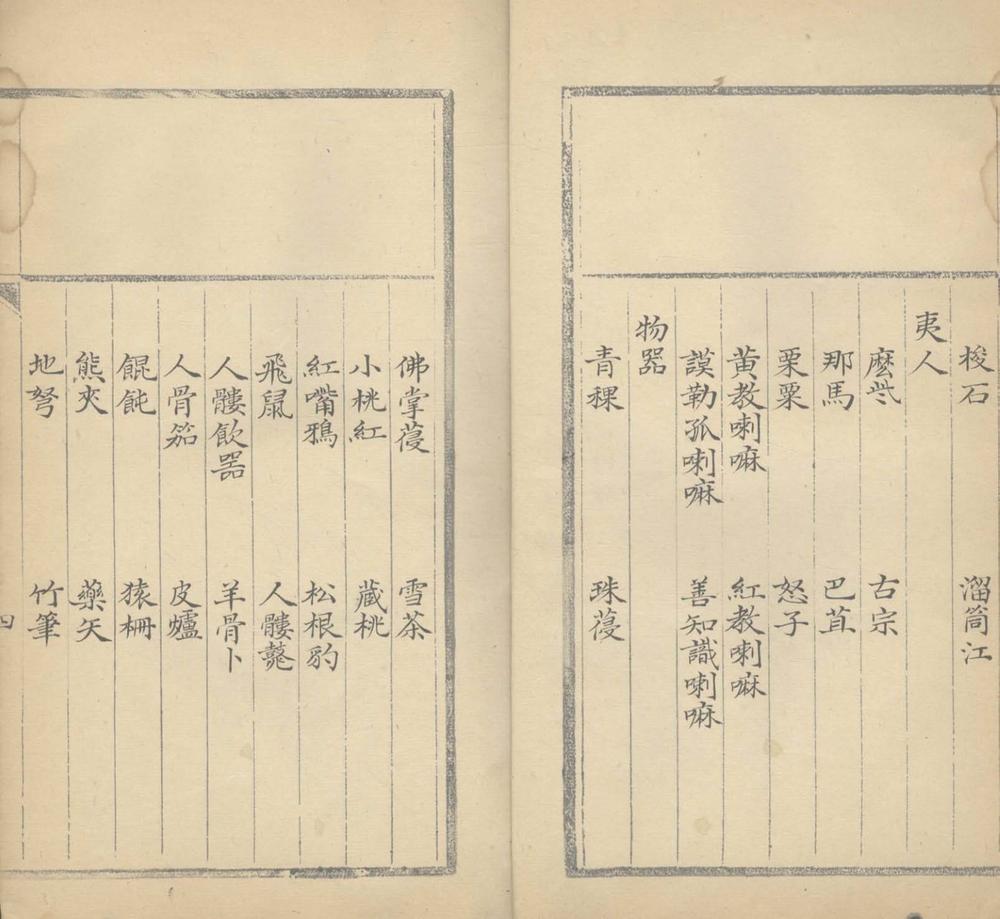 梭石 溜筒江
夷人
麽些 古宗
那馬 巴苴
栗粟 怒子
黃教喇嘛 紅教喇嘛
謨勒孤喇嘛 善知識喇嘛
物器
青稞 珠葠
佛掌葠 雪茶
小桃紅 藏桃
紅嘴鴉 松根豹
飛鼠 人髏鼗
人髏飲器 羊骨卜
人骨笳 皮爐
餛飩 猿柵
熊夾 藥矢
地弩 竹筆
四